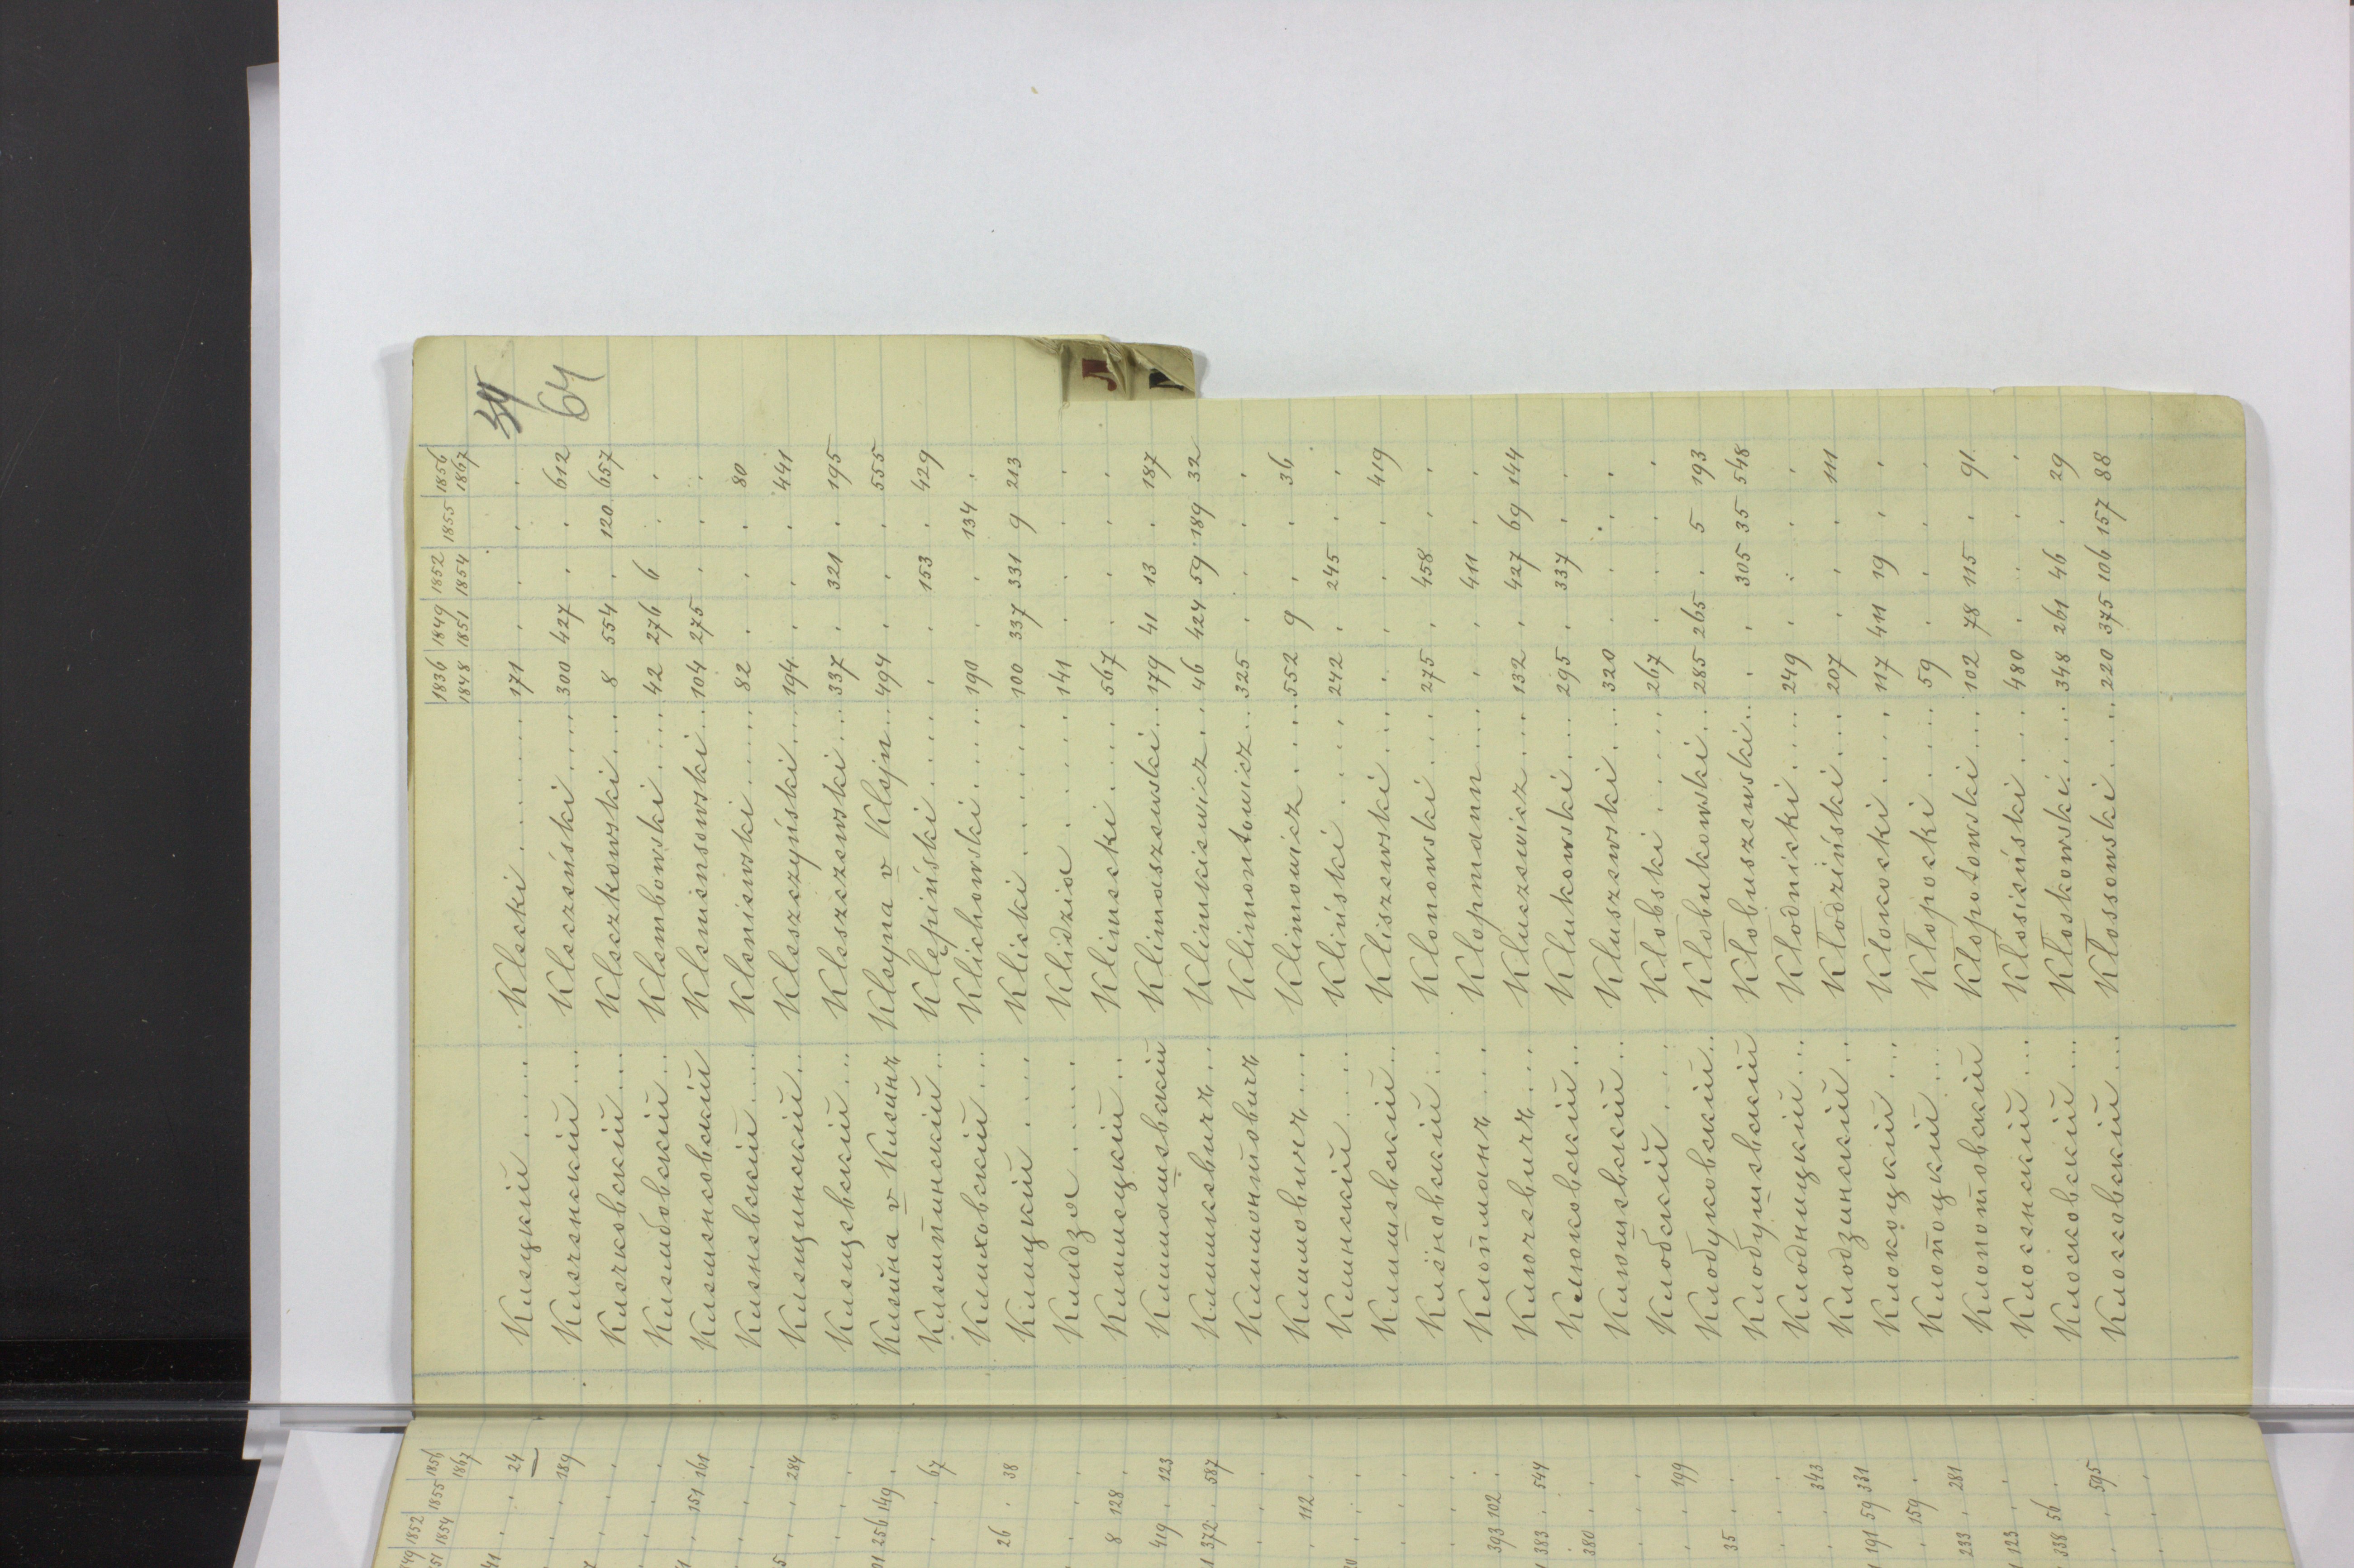 34
64
1836 1849 1852 1855 1856
1848 1851 1854 1867
Клецкій ..... Klecki ..... 171 . . . .
Клеченскій ... Kleczeński .... 300 427 . . 612
Клечковскій ... Kleczkowski ... 8 554 . 120 657
Клембовскій ... Klembowski .... 42 276 6 . .
Клеменсовскій Klemensowski ... 104 275 . . .
Кленевскій .... Kleniewski ..... 82 . . . 80
Клещинскій ... Kleszczyński .... 194 . . . 441
Клещевскій ... Kleszczewski ... 337 . 321 . 195
Клейна v Клейнъ Kleyna v Klejn ... 494 . . . 555
Клемпинскій ... Klępiński ..... . . 153 . 429
Клиховскій ... Klichowski ..... 190 . . 134 .
Клицкій .... Klicki ..... 100 337 331 9 213
Клидзя ..... Klidzia ..... 141 . . . .
Климецкій ... Klimecki .... 567 . . . .
Климашевскій Klimaszewski ... 179 41 13 . 187
Климкевичъ ... Klimkiewicz ... 46 424 59 189 32
Климонтовичъ Klimontowicz ... 325 . . . .
Климовичъ .... Klimowicz .... 552 9 . . 36
Клинскій .... Kliński .... 242 . 245 . .
Клишевскій ... Kliszewski .... . . . . 419
Клёновскій ... Klonowski .... 275 . 458 . .
Клопманъ .... Klopmann .... . . 411 . .
Ключевичъ ... Kluczewicz .... 132 . 427 69 144
Клюковскій ... Klukowski .... 295 . 337 . .
Клюшевскій ... Kluszewski ... 320 . . . .
Клобскій .... Kłobski ..... 267 . . . .
Клобуковскій ... Kłobukowski ... 285 265 . 5 193
Клобушевскій Kłobuszewski ... . . 305 35 548
Клодницкій ... Kłodnicki .... 249 . . . .
Клодзинскій ... Kłodziński .... 207 . . . 111
Клокоцкій .... Kłokocki .... 117 411 19 . .
Клопоцкій .... Kłopocki .... 59 . . . .
Клопотовскій Kłopotowski ... 102 78 115 . 91
Клосенскій ... Kłosieński .... 480 . . . .
Клосковскій ... Kłoskowski .... 348 261 46 . 29
Клоссовскій ... Kłossowski .... 220 375 106 157 88
1852 1855 1856
1854 1867
24
189
151 161
284
256 149
67
26 . 38
8 128
419 . 123
372 . 587
112
393 102
383 . 544
380
199
35
343
191 59 331
. 159
233 . 281
123
338 56
595